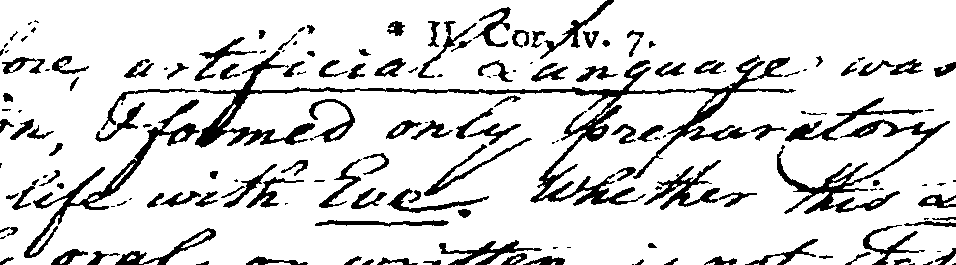 * II. Cor. iv. 7.
fore, artificial Language was
on, & formed only preparatory
life with Eve. Whether this
oral, or written, is not